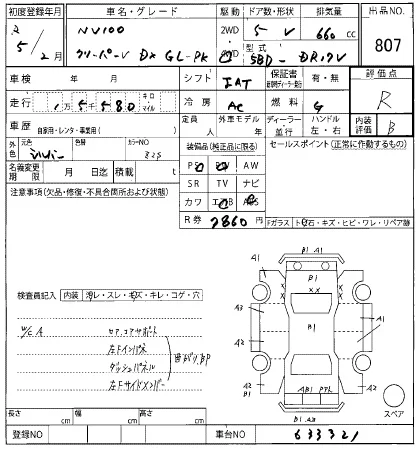 初度登録年月 車名・グレード 駆動 ドア数・形状 排気量 出品NO.
R 5/2月 NV100 2WD 5 V 660 cc 807
クリーパーV DX GL-PK 4WD 型式 5BD-DR17V
車検 年 月 シフト IAT 保証書 有・無 評価点
走行 1 5 5 8 0 キロ マイル 冷房 AC 燃料 G R
車歴 自家用・レンタ・事業用( ) 定員 人 外車モデル 年 ディーラー 並行 ハンドル 左・右 内装評価 B
外色 元色 シルバー 色替 カラーNO 装備品(純正品に限る) セールスポイント(正常に作動するもの)
名義変更期限 月 日迄 積載 t PS PW AW
注意事項(欠品・修復・不具合箇所および状態) SR TV ナビ
カワ エアB ABS
R券 7860円 Fガラス トビ石・キズ・ヒビ・ワレ・リペア跡
A1 B1 A1 A1
B1
検査員記入 内装 汚レ・スレ・キズ・キレ・コゲ・穴
A3 A1
W/C A コア,コアサポート B1
左Fインパネ
ダッシュパネル
左Fサイドメンバー
A2 B1 A2 A2
AB1
スペア
長さ cm 幅 cm 高さ cm B1.A2
登録NO 車台NO 633321